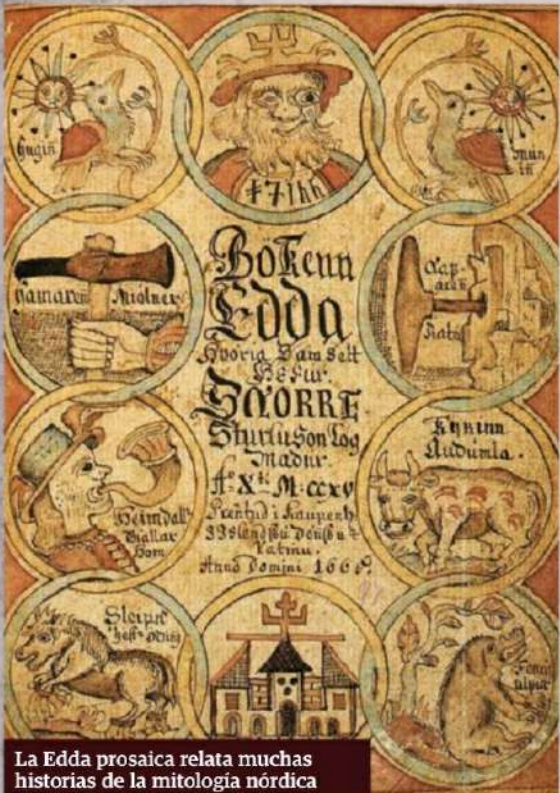 Hugiñ
Mun
iñ
Hamaren Miolner
Bokenn
Edda
Hvoria Samsett
Hefur
SNORRE
Sturluson Log
madur.
Aº X M.CCXV
Prentud i Kaupenh
Latinu.
Anno Domini 1665.
Rata
Heimdall
Giallar
horn
Kyrinn
Audumla.
Sleipn
La Edda prosaica relata muchas
historias de la mitología nórdica